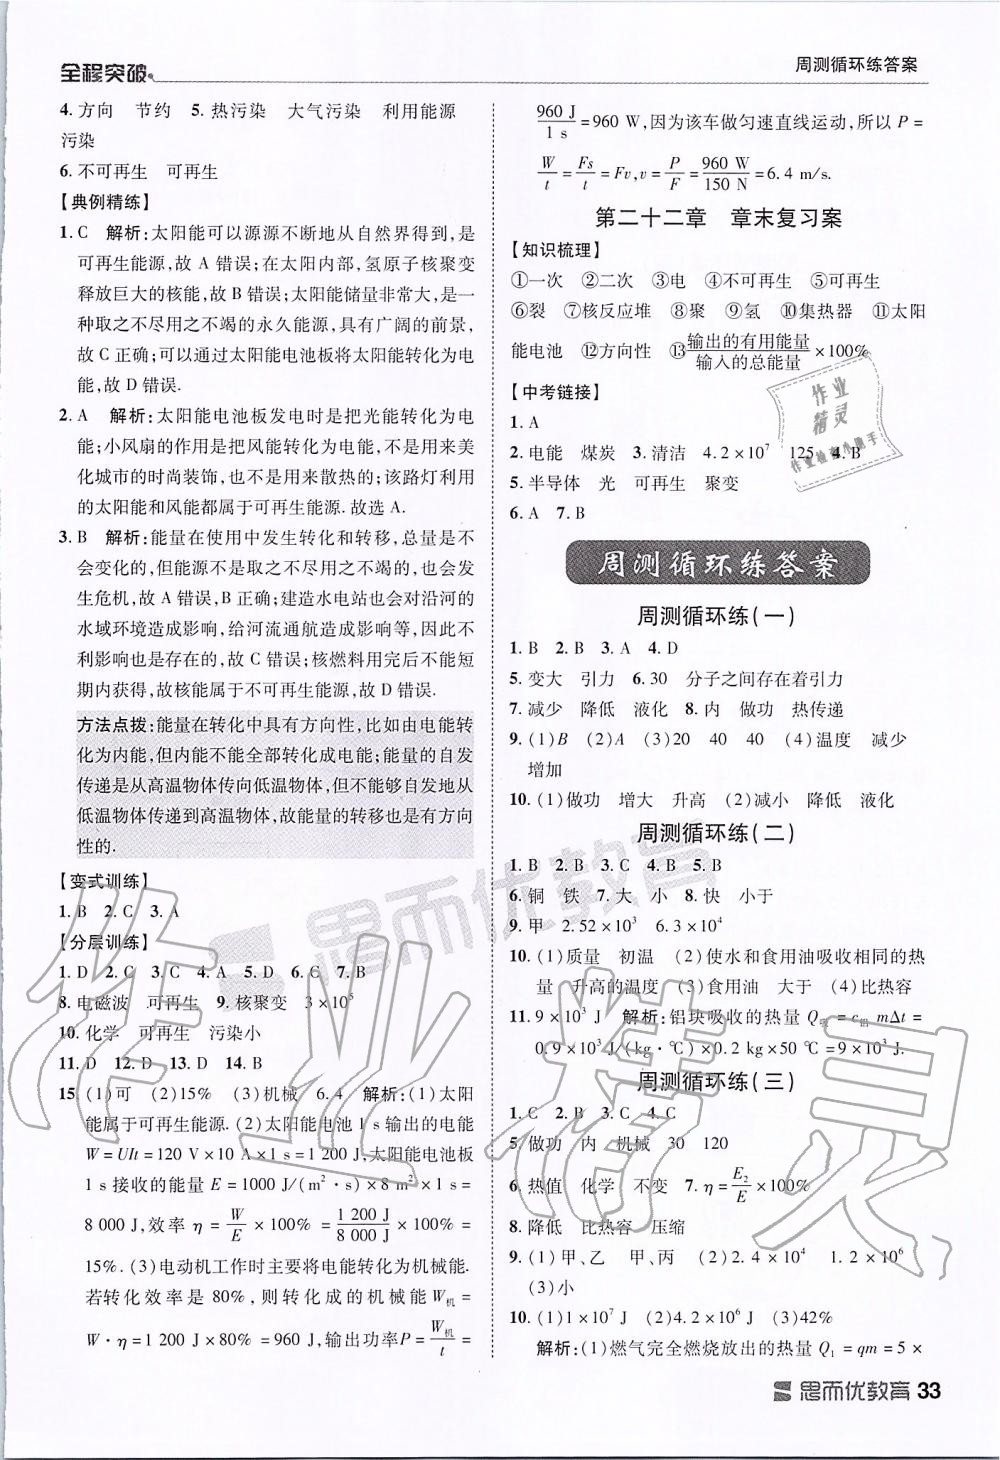 全程突破
周测循环练答案
4. 方向　节约　5. 热污染　大气污染　利用能源
污染
6. 不可再生　可再生
【典例精练】
1. C　解析:太阳能可以源源不断地从自然界得到,是
可再生能源,故 A 错误;在太阳内部,氢原子核聚变
释放巨大的核能,故 B 错误;太阳能储量非常大,是一
种取之不尽用之不竭的永久能源,具有广阔的前景,
故 C 正确;可以通过太阳能电池板将太阳能转化为电
能,故 D 错误.
2. A　解析:太阳能电池板发电时是把光能转化为电
能;小风扇的作用是把风能转化为电能,不是用来美
化城市的时尚装饰,也不是用来散热的;该路灯利用
的太阳能和风能都属于可再生能源.故选 A.
3. B　解析:能量在使用中发生转化和转移,总量是不
会变化的,但能源不是取之不尽用之不竭的,也会发
生危机,故 A 错误,B 正确;建造水电站也会对沿河的
水域环境造成影响,给河流通航造成影响等,因此不
利影响也是存在的,故 C 错误;核燃料用完后不能短
期内获得,故核能属于不可再生能源,故 D 错误.
方法点拨:能量在转化中具有方向性,比如由电能转
化为内能,但内能不能全部转化成电能;能量的自发
传递是从高温物体传向低温物体,但不能够自发地从
低温物体传递到高温物体,故能量的转移也是有方向
性的.
【变式训练】
1. B　2. C　3. A
【分层训练】
1. D　2. C　3. C　4. A　5. D　6. C　7. B
8. 电磁波　可再生　9. 核聚变　3×10⁵
10. 化学　可再生　污染小
11. D　12. D　13. D　14. B
15. (1)可　(2)15%　(3)机械　6.4　解析:(1)太阳
能属于可再生能源.(2)太阳能电池 1 s 输出的电能
W=UIt=120 V×10 A×1 s=1 200 J,太阳能电池板
1 s 接收的能量 E=1000 J/(m²·s)×8 m²×1 s=
8 000 J,效率 η=W/E×100%=1 200 J/8 000 J×100%=
15%.(3)电动机工作时主要将电能转化为机械能.
若转化效率是 80%,则转化成的机械能 W机=
W·η=1 200 J×80%=960 J,输出功率 P=W机/t=
960 J/1 s=960 W,因为该车做匀速直线运动,所以 P=
W/t=Fs/t=Fv,v=P/F=960 W/150 N=6.4 m/s.
第二十二章　章末复习案
【知识梳理】
①一次　②二次　③电　④不可再生　⑤可再生
⑥裂　⑦核反应堆　⑧聚　⑨氢　⑩集热器　⑪太阳
能电池　⑫方向性　⑬输出的有用能量/输入的总能量×100%
【中考链接】
1. A
2. 电能　煤炭　3. 清洁　4.2×10⁷　125　4. B
5. 半导体　光　可再生　聚变
6. A　7. B
周测循环练答案
周测循环练(一)
1. B　2. B　3. A　4. D
5. 变大　引力　6. 30　分子之间存在着引力
7. 减少　降低　液化　8. 内　做功　热传递
9. (1)B　(2)A　(3)20　40　40　(4)温度　减少
增加
10. (1)做功　增大　升高　(2)减小　降低　液化
周测循环练(二)
1. B　2. B　3. C　4. B　5. B
6. 铜　铁　7. 大　小　8. 快　小于
9. 甲　2.52×10³　6.3×10⁴
10. (1)质量　初温　(2)使水和食用油吸收相同的热
量　升高的温度　(3)食用油　大于　(4)比热容
11. 9×10³ J　解析:铝块吸收的热量 Q吸=c铝mΔt=
0.9×10³ J/(kg·℃)×0.2 kg×50 ℃=9×10³ J.
周测循环练(三)
1. C　2. B　3. C　4. C
5. 做功　内　机械　30　120
6. 热值　化学　不变　7. η=E₂/E×100%
8. 降低　比热容　压缩
9. (1)甲、乙　甲、丙　(2)2.4×10⁴　1.2×10⁶
(3)小
10. (1)1×10⁷ J　(2)4.2×10⁶ J　(3)42%
解析:(1)燃气完全燃烧放出的热量 Q₁=qm=5×
思而优教育 33
作业精灵
思而优教育
作业
精灵
作业检查小助手